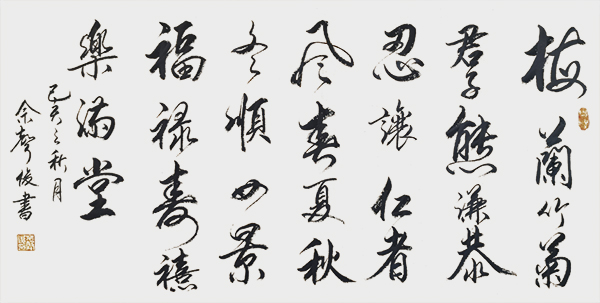 梅蘭竹菊
君子態謙恭
忍讓仁者
風春夏秋
冬順四景
福祿壽禧
樂滿堂
己亥之秋月
書